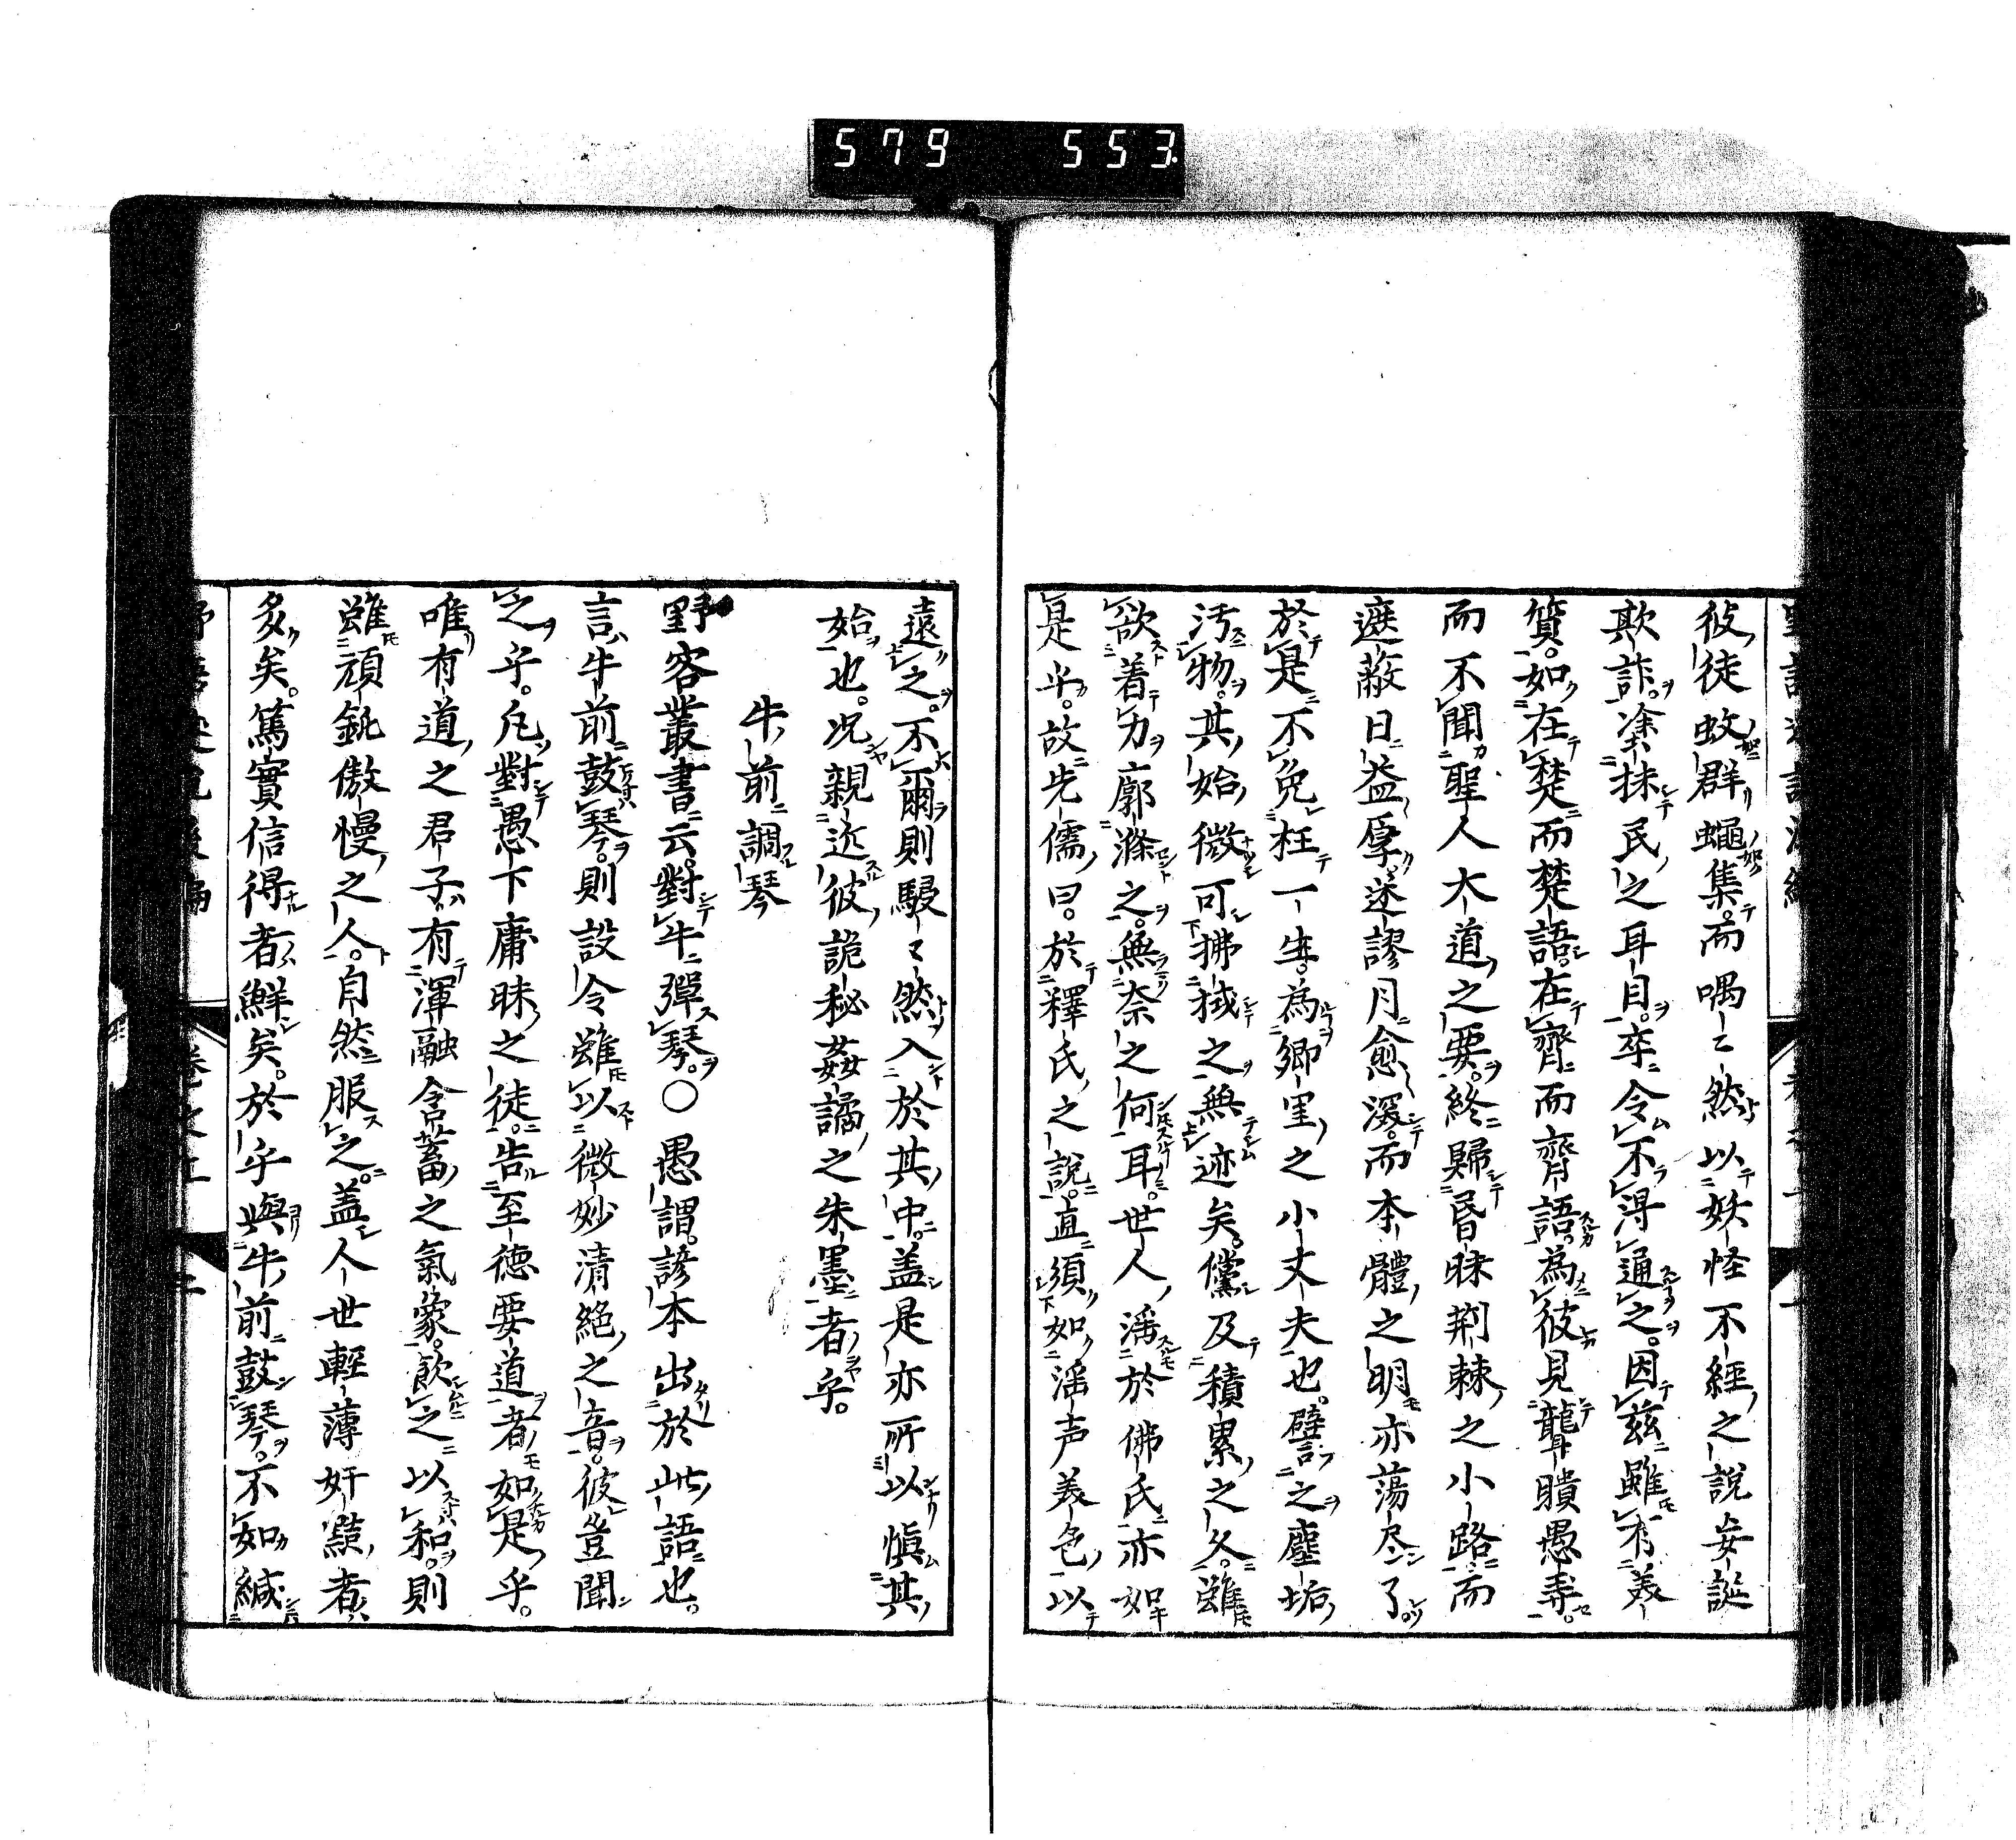 579 553
彼徒蚊群蠅集而喁〻然以妖怪不經之說妄誕
欺詐塗抹民之耳目卒令不得通之因茲雖有美
質如在楚而楚語在齊而齊語為彼見聾聵愚辱
而不聞聖人大道之要終歸昏昧荊棘之小路而
遮蔽日益厚迷謬月愈深而本體之明亦蕩尽了
於是不免枉一生為鄉里之小丈夫也譬之塵垢
汚物其始微可拂拭之無迹矣儻及積累之久雖
欲着力廓滌之無奈之何耳世人滛於佛氏亦如
是乎故先儒曰於釋氏之說直須如滛声美色以
遠之不爾則駸〻然入於其中盖是亦所以慎其
始也况親近彼詭秘姦譎之朱墨者乎
牛前調琴
野客叢書云對牛彈琴○愚謂諺本出於此語也
言牛前鼓琴則設令雖以微妙清絶之音彼豈聞
之乎凡對愚下庸昧之徒告至德要道者如是乎
唯有道之君子有渾融含蓄之氣象飲之以和則
雖頑鈍傲慢之人自然服之盖人世輕薄奸黠者
多矣篤實信得者鮮矣於乎與牛前鼓琴不如緘